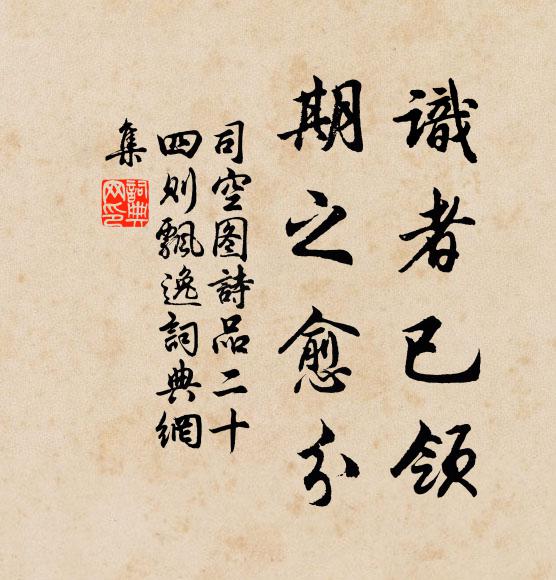 識者已領
期之愈分
司空图詩品二十
四则飄逸詞典網
集
詞典
网印